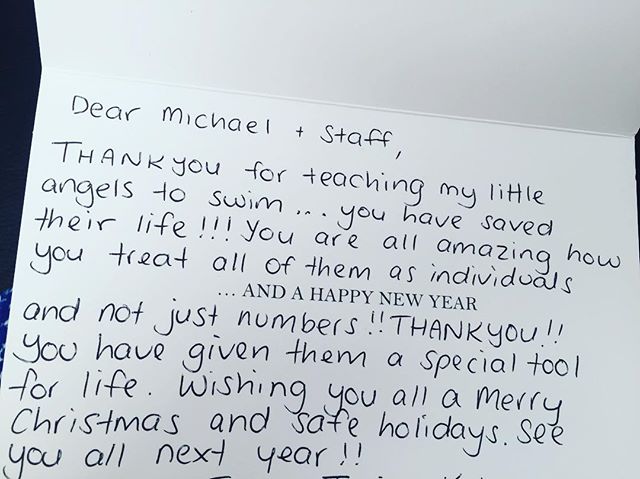 Dear Michael + Staff,
THANKyou for teaching my little
angels to swim ... you have saved
their life!!! You are all amazing how
you treat all of them as individuals
... AND A HAPPY NEW YEAR
and not just numbers!! THANKyou!!
You have given them a special tool
for life. Wishing you all a Merry
Christmas and safe holidays. See
you all next year!!